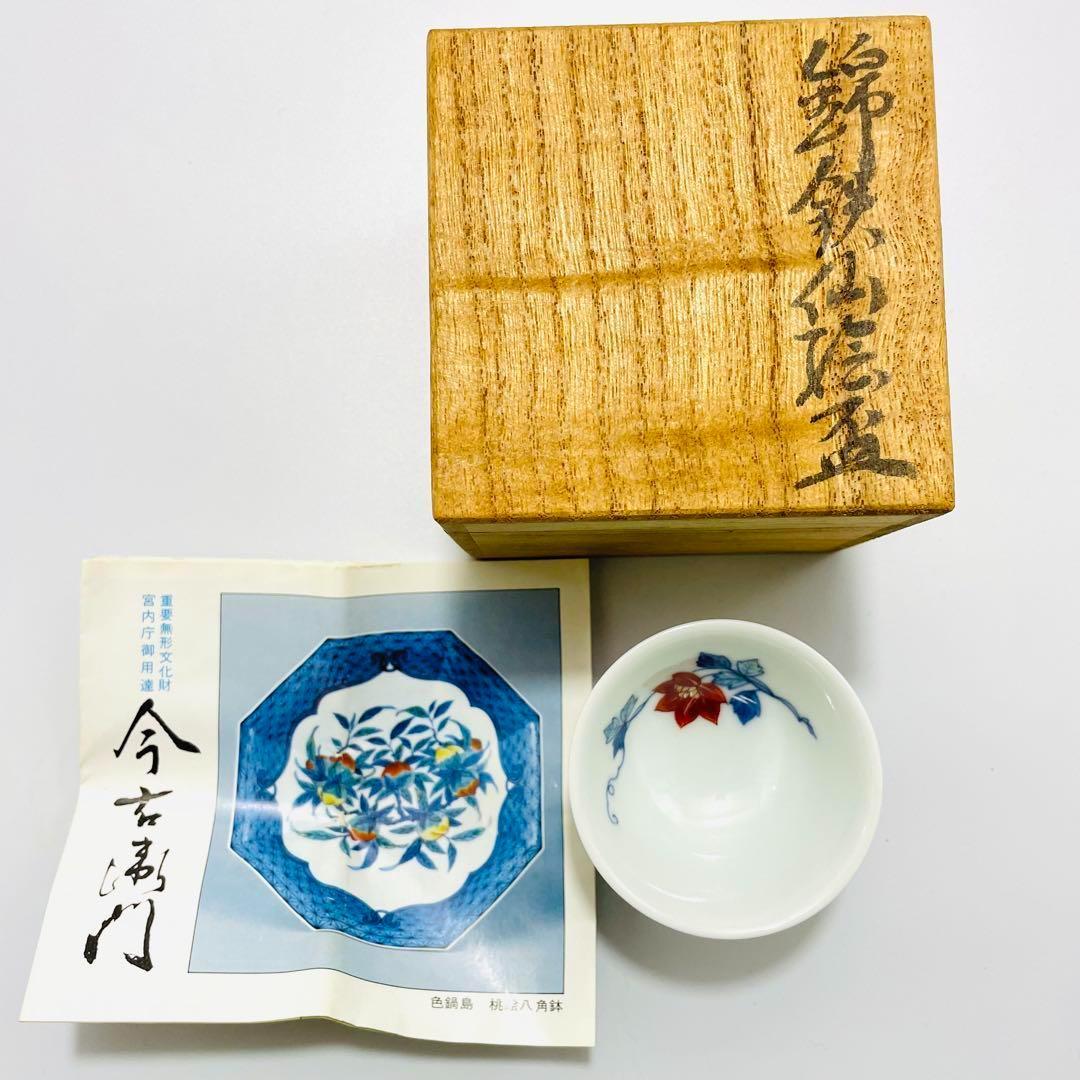 錦鉄仙絵盃
重要無形文化財
宮内庁御用達
今右衛門
色鍋島 桃絵八角鉢